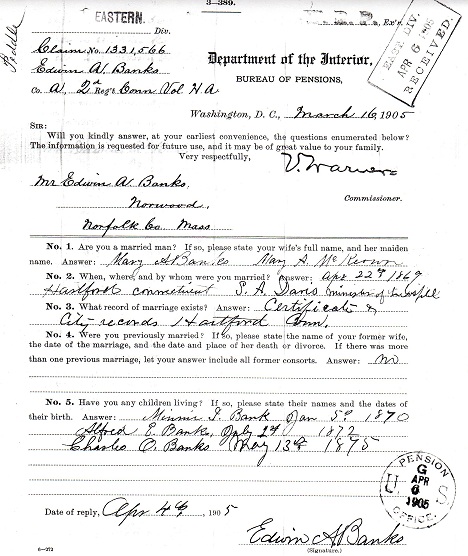 3—389.
EASTERN.
Div.
Ex'r.
EAST. DIV.
APR 6 1905
RECEIVED.
Claim No. 1331,566
Edwin A. Banks
Co. A, 2d Reg't Conn Vol H A
Department of the Interior,
BUREAU OF PENSIONS,
Washington, D. C., March 16, 1905
SIR:
Will you kindly answer, at your earliest convenience, the questions enumerated below?
The information is requested for future use, and it may be of great value to your family.
Very respectfully,
V. Warner
Commissioner.
Mr Edwin A. Banks,
Norwood,
Norfolk Co. Mass
No. 1. Are you a married man? If so, please state your wife's full name, and her maiden
name. Answer: Mary A Banks Mary A. McKeown
No. 2. When, where, and by whom were you married? Answer: Apr 22nd 1869
Hartford connecticut S. A. Davis minister of
No. 3. What record of marriage exists? Answer: Certificate &
City records Hartford Conn.
No. 4. Were you previously married? If so, please state the name of your former wife,
the date of the marriage, and the date and place of her death or divorce. If there was more
than one previous marriage, let your answer include all former consorts. Answer: No
No. 5. Have you any children living? If so, please state their names and the dates of
their birth. Answer: Minnie I. Bank Jan 5th 1870
Alfred E. Banks, July 2d 1872
Charles O. Banks May 13th 1875
U S PENSION OFFICE
G
APR
6
1905
Date of reply, Apr 4th, 1905
Edwin A Banks
(Signature.)
6—272